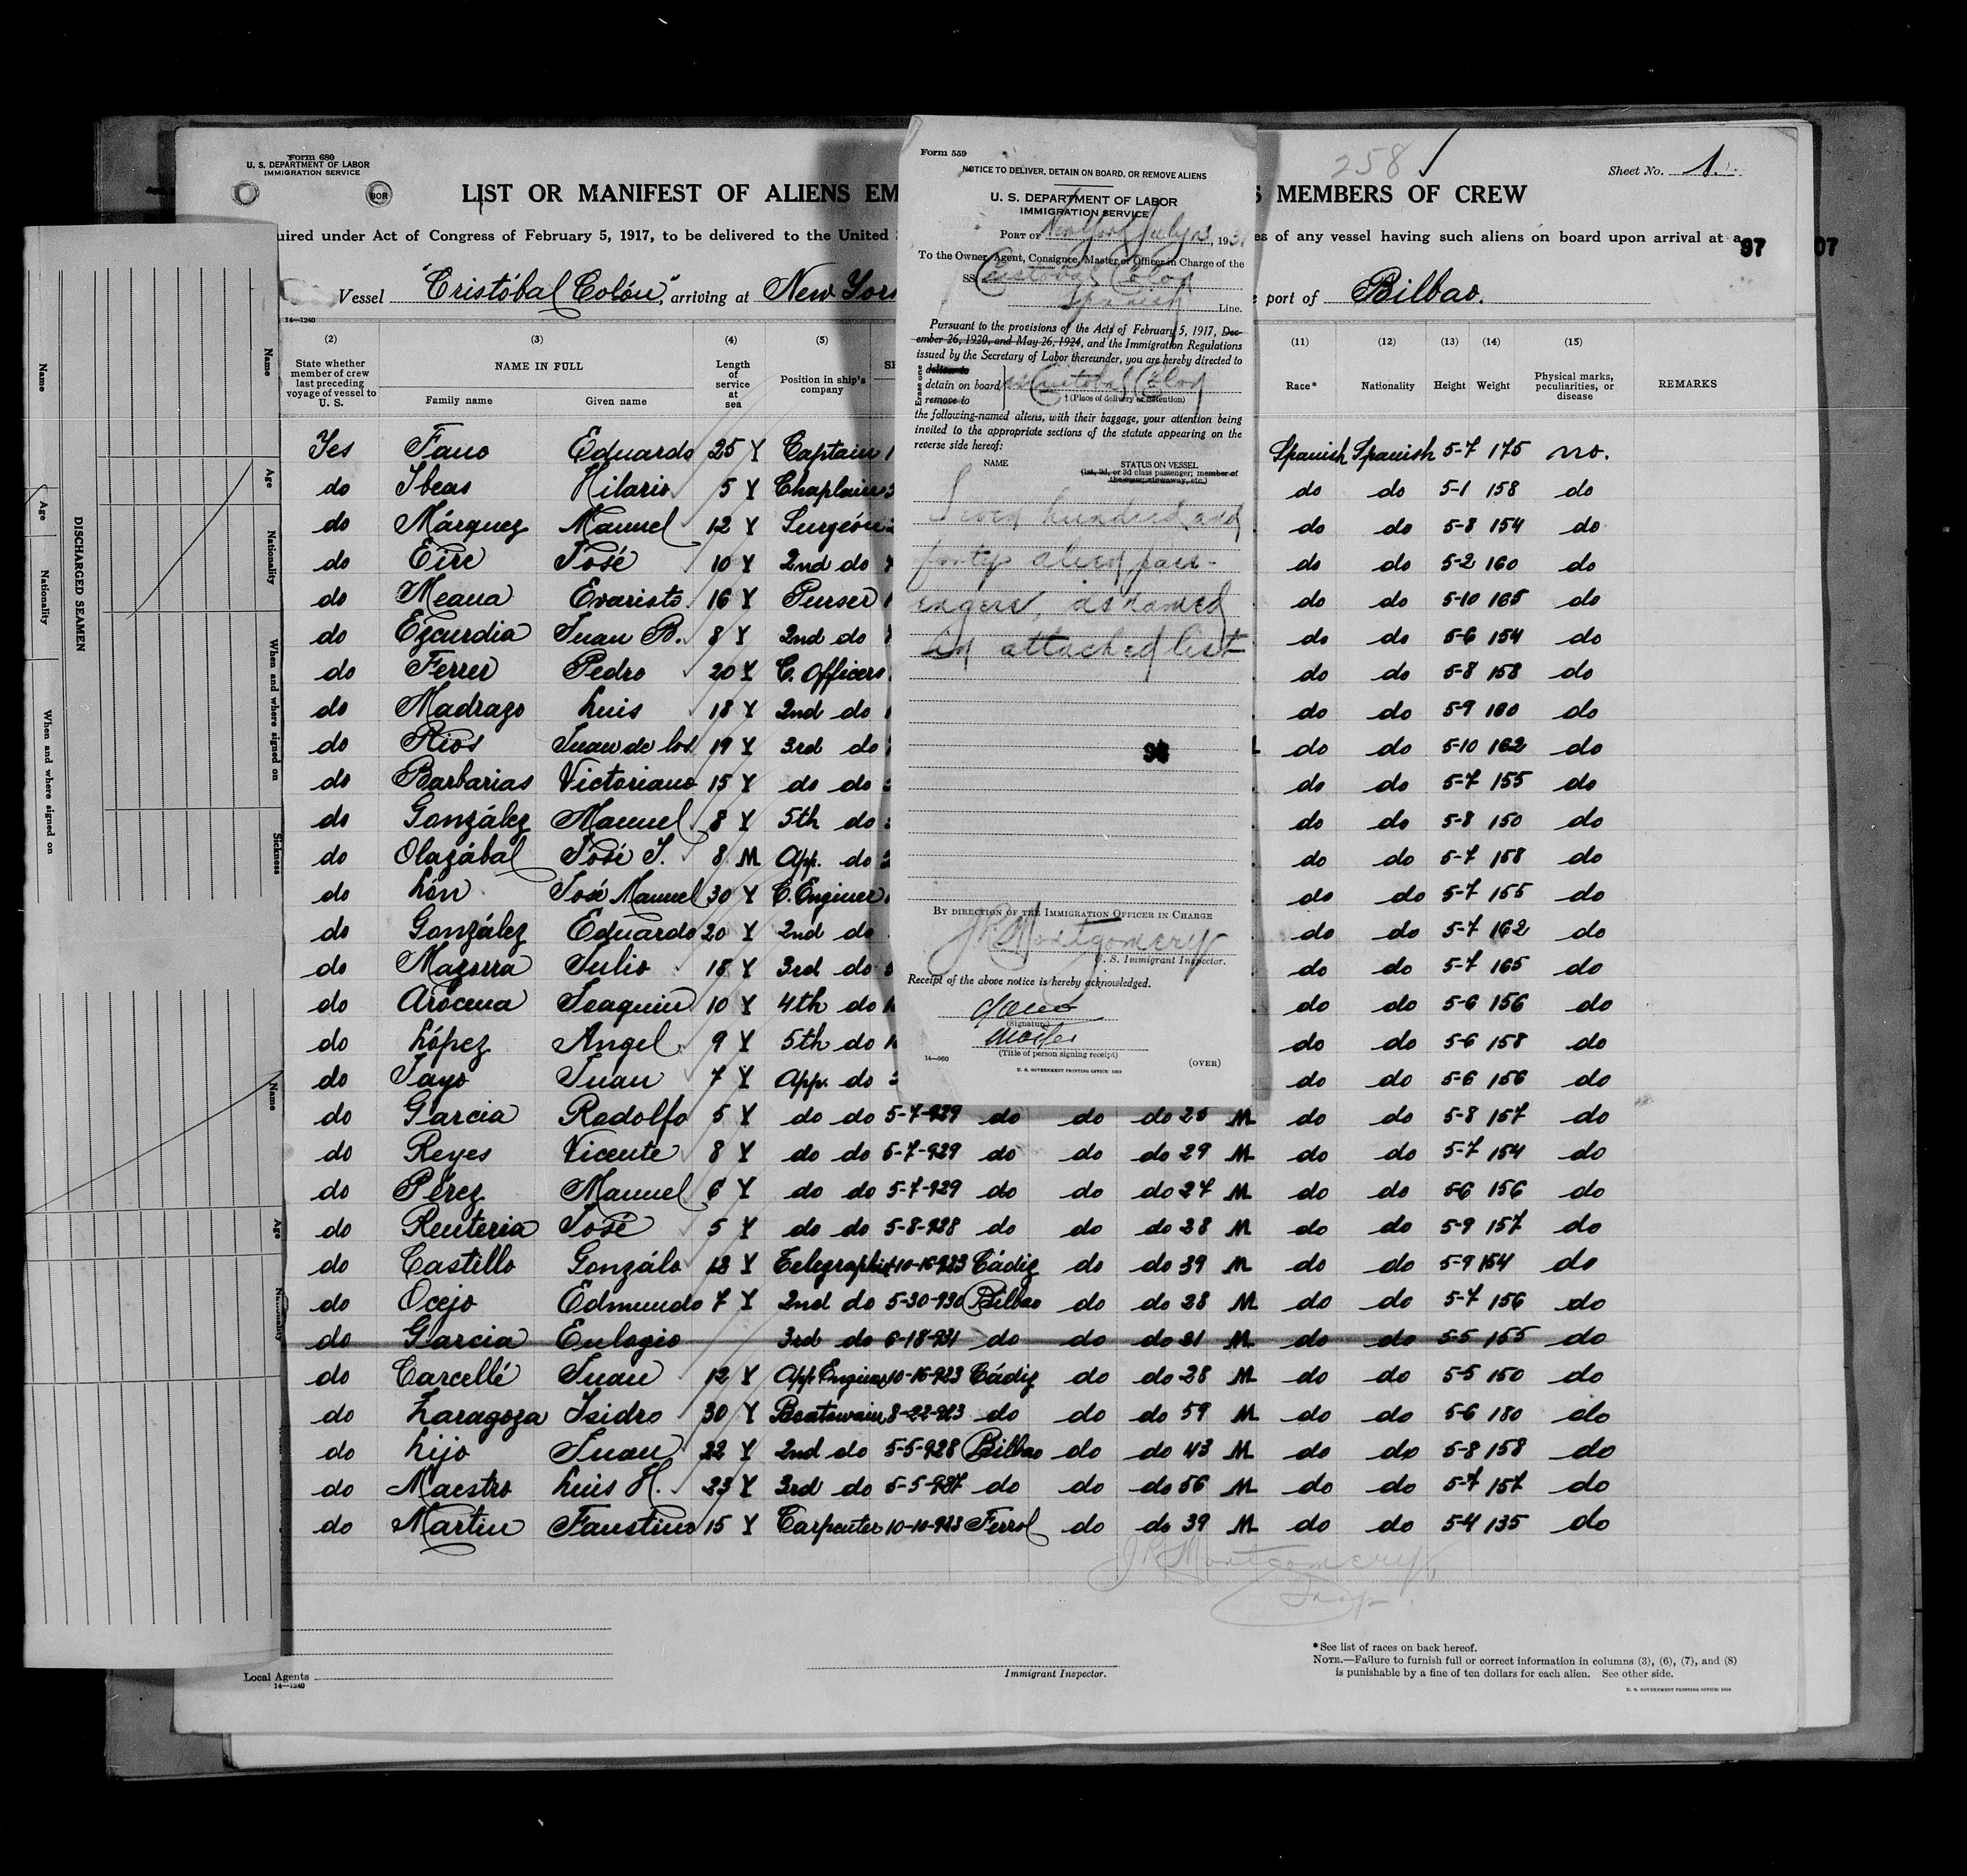 Form 680
U. S. DEPARTMENT OF LABOR
IMMIGRATION SERVICE
BOR
258
Sheet No. 1.
LIST OR MANIFEST OF ALIENS EM
S MEMBERS OF CREW
uired under Act of Congress of February 5, 1917, to be delivered to the United
es of any vessel having such aliens on board upon arrival at a
97
07
Vessel "Cristóbal Colón", arriving at New York
port of Bilbao.
14—1240
(2) (3) (4) (5) (11) (12) (13) (14) (15)
State whether member of crew last preceding voyage of vessel to U. S.
NAME IN FULL
Family name Given name
Length of service at sea
Position in ship's company
Race* Nationality Height Weight Physical marks, peculiarities, or disease REMARKS
Yes Fano Eduardo 25 Y Captain Spanish Spanish 5-7 175 no.
do Ibeas Hilario 5 Y Chaplain do do 5-1 158 do
do Márquez Manuel 12 Y Surgeón do do 5-8 154 do
do Eire José 10 Y 2nd do do do 5-2 160 do
do Meana Evaristo 16 Y Purser do do 5-10 165 do
do Ezcurdia Juan B. 8 Y 2nd do do do 5-6 154 do
do Ferrer Pedro 20 Y C. Officers do do 5-8 158 do
do Madrazo Luis 18 Y 2nd do do do 5-9 160 do
do Rios Juan de los 19 Y 3rd do do do 5-10 162 do
do Barbarias Victoriano 15 Y do do do do 5-7 155 do
do González Manuel 8 Y 5th do do do 5-8 150 do
do Olazábal José J. 8 M App. do do do 5-7 158 do
do Lón José Manuel 30 Y C. Enginer do do 5-7 155 do
do González Eduardo 20 Y 2nd do do do 5-7 162 do
do Mazorra Julio 18 Y 3rd do do do 5-7 165 do
do Arocena Joaquin 10 Y 4th do do do 5-6 156 do
do López Angel 9 Y 5th do do do 5-6 158 do
do Jayo Juan 7 Y App. do do do 5-6 156 do
do Garcia Rodolfo 5 Y do do 5-7-929 do do do 25 M do do 5-8 157 do
do Reyes Vicente 8 Y do do 5-7-929 do do do 29 M do do 5-7 154 do
do Pérez Manuel 6 Y do do 5-7-929 do do do 27 M do do 5-6 156 do
do Renteria José 5 Y do do 5-8-928 do do do 28 M do do 5-9 157 do
do Castillo Gonzálo 12 Y Telegraphist 10-16-923 Cádiz do do 39 M do do 5-9 154 do
do Ocejo Edmundo 7 Y 2nd do 5-30-930 Bilbao do do 28 M do do 5-7 156 do
do Garcia Eulogio 3rd do 6-18-931 do do do 21 M do do 5-5 155 do
do Carcellé Juan 12 Y App Enginer 10-16-923 Cádiz do do 28 M do do 5-5 150 do
do Zaragoza Isidro 30 Y Boatswain 8-22-923 do do do 59 M do do 5-6 180 do
do Lijo Juan 22 Y 2nd do 5-5-928 Bilbao do do 43 M do do 5-8 158 do
do Maestro Luis H. 23 Y 3rd do 5-5-927 do do do 56 M do do 5-7 157 do
do Martin Faustino 15 Y Carpenter 10-10-923 Ferrol do do 39 M do do 5-4 135 do
J R Montgomery
Insp.
Local Agents
14—1240
Immigrant Inspector.
*See list of races on back hereof.
NOTE.—Failure to furnish full or correct information in columns (3), (6), (7), and (8)
is punishable by a fine of ten dollars for each alien. See other side.
U. S. GOVERNMENT PRINTING OFFICE: 1929
Form 559
NOTICE TO DELIVER, DETAIN ON BOARD, OR REMOVE ALIENS
U. S. DEPARTMENT OF LABOR
IMMIGRATION SERVICE
PORT OF New York July 13, 1931
To the Owner, Agent, Consignee, Master or Officer in Charge of the
SS Cristobal Colon
Spanish Line.
Pursuant to the provisions of the Acts of February 5, 1917, Dec-
ember 26, 1920, and May 26, 1924, and the Immigration Regulations
issued by the Secretary of Labor thereunder, you are hereby directed to
Erase one
deliver to
detain on board ss Cristobal Colon
remove to
† (Place of delivery or detention)
the following-named aliens, with their baggage, your attention being
invited to the appropriate sections of the statute appearing on the
reverse side hereof:
NAME STATUS ON VESSEL
(1st, 2d, or 3d class passenger; member of
the crew; stowaway, etc.)
Seven hundred and
forty alien pass-
engers, as named
in attached list
By direction of the Immigration Officer in Charge
J R Montgomery
U. S. Immigrant Inspector.
Receipt of the above notice is hereby acknowledged.
Fano
(Signature)
Master
(Title of person signing receipt)
14—560
(OVER)
U. S. GOVERNMENT PRINTING OFFICE: 1929
DISCHARGED SEAMEN
Name
Age
Nationality
When and where signed on
Name
Age
Nationality
When and where signed on
Sickness
Name
Age
Nationality